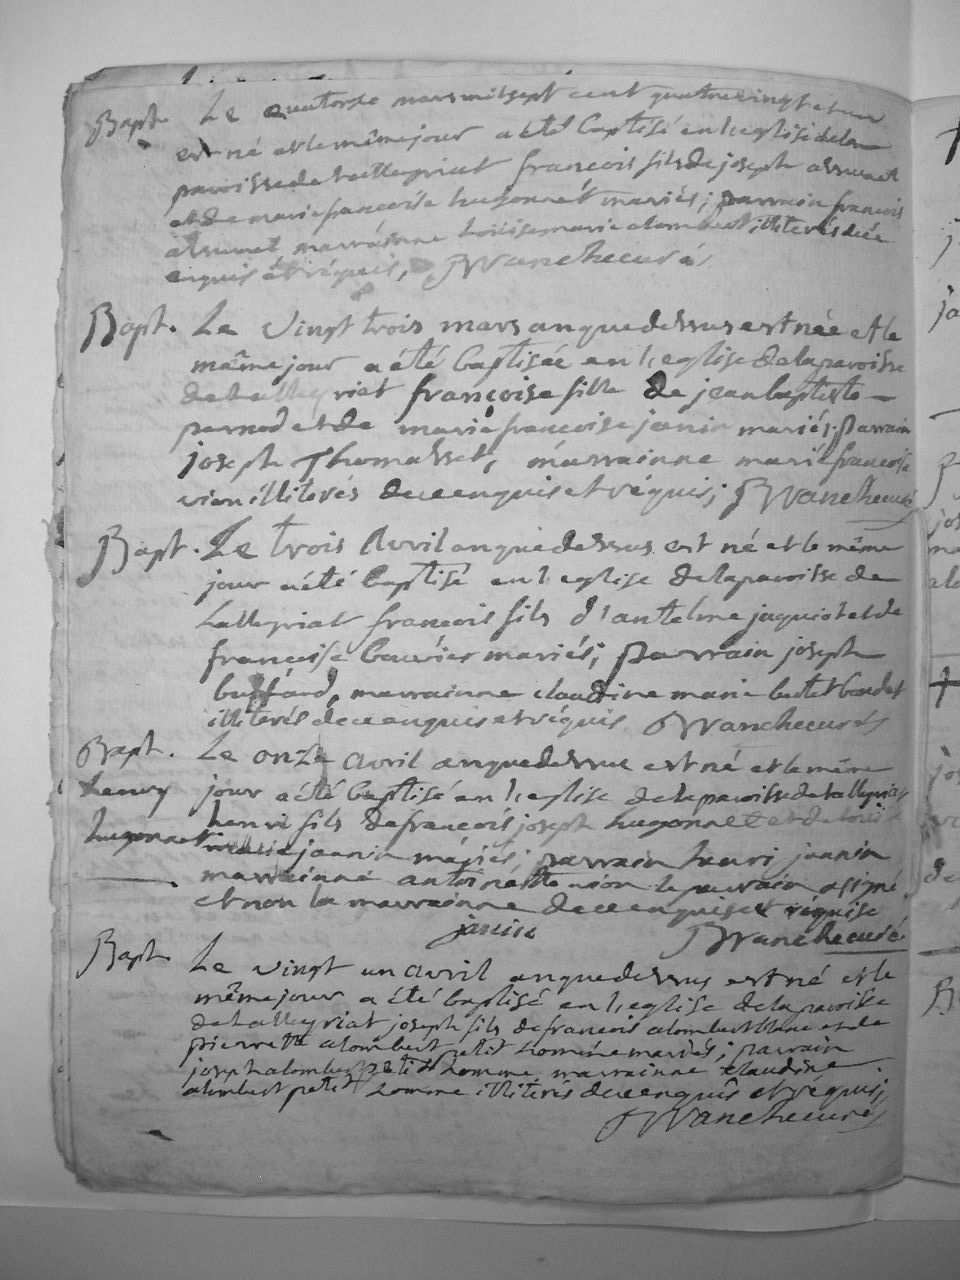 Bapt. Le quatorze mars mil sept cent quatrevingt et un
est né et le même jour a été baptisé en l'eglise de la
paroisse de Lalleyriat francois fils de joseph
et de marie françoise hugonnet mariés; parrain francois
marrainne Louise marie alombert illiterés de ce
enquis et réquis, Wanche curé
Bapt. Le vingt trois mars an que dessus est née et le
même jour a été baptisée en l'eglise de la paroisse
de Lalleyriat françoise fille de jean baptiste
pernod et de marie francoise janin mariés; parrain
joseph Thomasset, marrainne marie francoise
vion illiterés de ce enquis et réquis; Wanche curé
Bapt. Le trois Avril an que dessus est né et le même
jour a été baptisé en l'eglise de la paroisse de
Lalleyriat francois fils d'antelme jaquiot et de
francoise mariés; parrain joseph
buffard, marrainne claudine marie
illiterés de ce enquis et réquis Wanche curé
Bapt. Le onze avril an que dessus est né et le même
henry jour a été baptisé en l'eglise de la paroisse de Lalleyriat
hugonnet henri fils de francois joseph hugonnet et de
marie janin mariés; parrain henri janin
marrainne antoinette vion le parrain a signé
et non la marrainne de ce enquise et réquise
Wanche curé
Bapt. Le vingt un avril an que dessus est né et le
même jour a été baptisé en l'eglise de la paroisse
de Lalleyriat joseph fils de francois alombert blanc et de
pierrette alombert petit homme mariés; parrain
joseph alombert petit homme, marrainne claudine
alombert petit homme illiterés de ce enquis et réquis;
Wanche curé